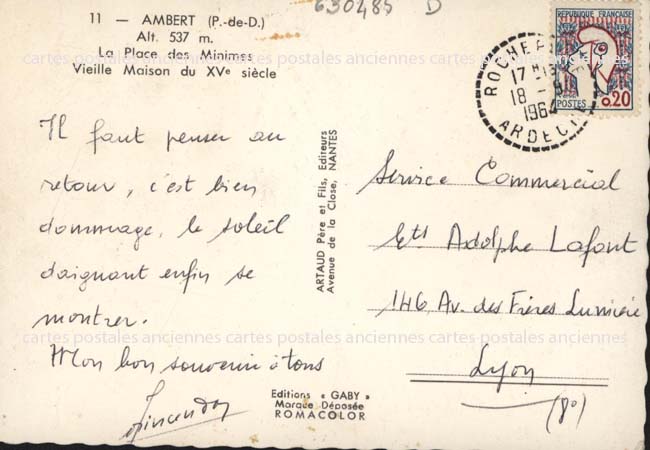 630485 D
11 — AMBERT (P.-de-D.)
Alt. 537 m.
La Place des Minimes
Vieille Maison du XVe siècle
REPUBLIQUE FRANÇAISE
POSTES 0,20
17 H
18 - 
196
ARDECHE
cartes postales anciennes cartes-postales anciennes cartes postales anciennes
Il faut penser au
retour, c'est bien
dommage, le soleil
daignant enfin se
montrer.
Mon bon souvenir à tous
ARTAUD Père et Fils, Editeurs
Avenue de la Close, NANTES
Service Commercial
Ets Adolphe Lafont
146, Av. des Frères Lumière
Lyon
(8°)
cartes postales anciennes cartes postales anciennes cartes-postales anciennes
Editions « GABY »
Marque Déposée
ROMACOLOR